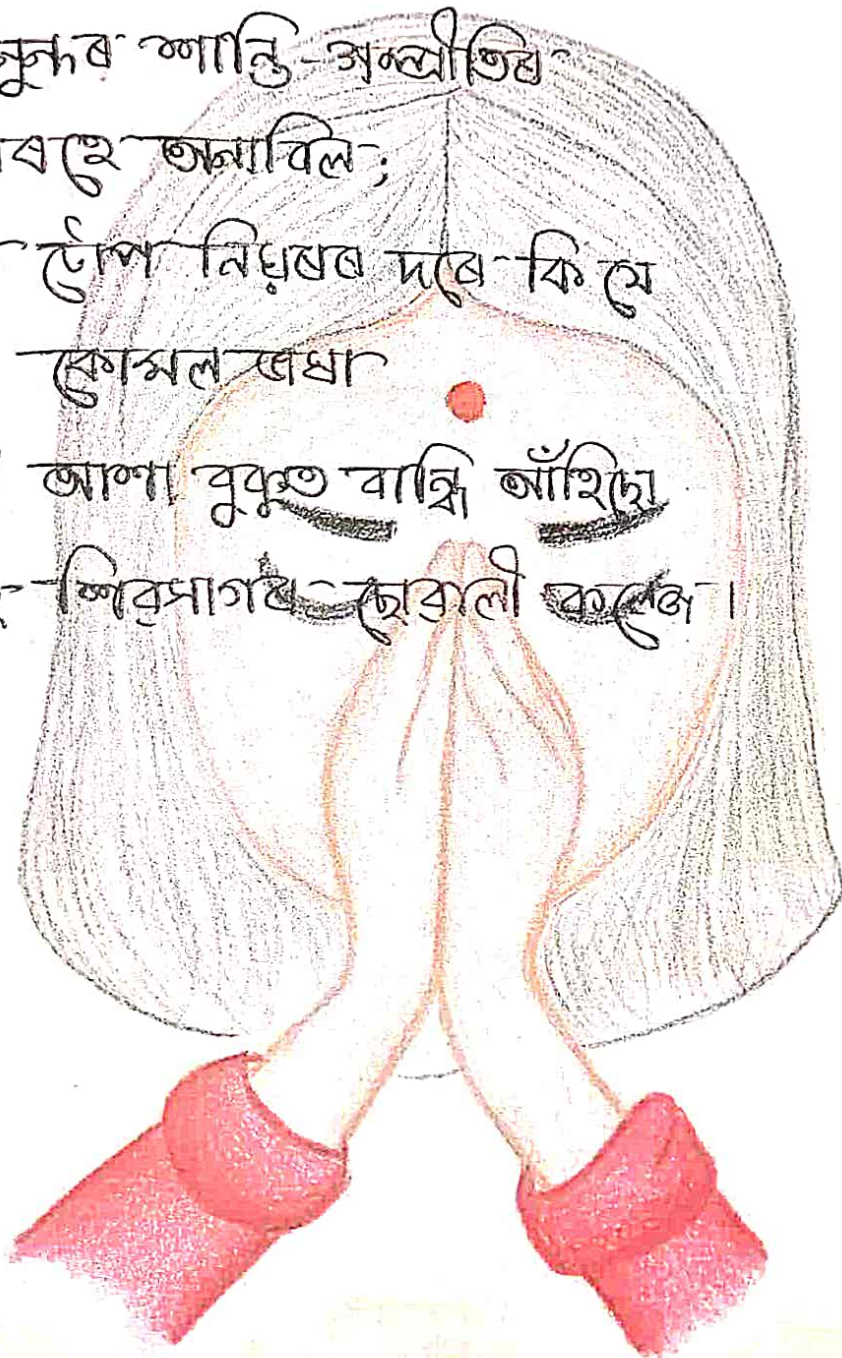 শান্তি-সম্প্ৰীতিৰ
অনাবিল;
টোপ নিয়ৰৰ দৰে কি যে
কোমল
আশা বুকুত বান্ধি আঁহিছো
শিৱসাগৰ ছোৱালী কলেজ।